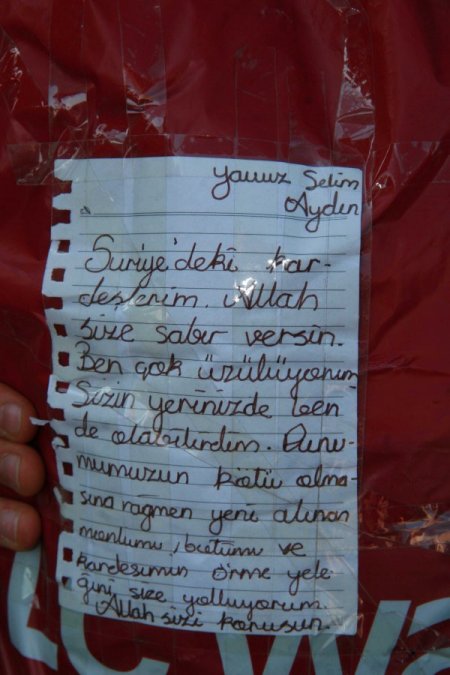 Yavuz Selim
Aydın
Suriye'deki kar-
deşlerim. Allah
size sabır versin.
Ben çok üzülüyorum
Sizin yerinizde ben
de olabilirdim. Duru-
mumuzun kötü olma-
sına rağmen yeni alınan
montumu, botumu ve
kardeşimin örme yele
ğini size yolluyorum.
Allah sizi korusun.